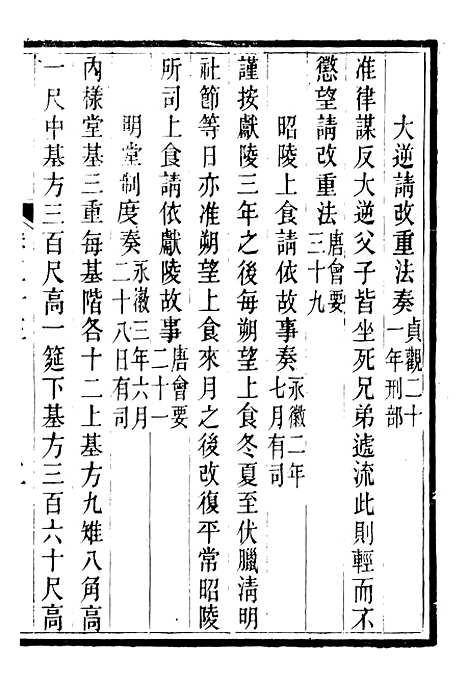 大逆請改重法奏貞觀二十一年刑部
准律謀反大逆父子皆坐死兄弟處流此則輕而不
懲望請改重法唐會要三十九
昭陵上食請依故事奏永徽二年七月有司
謹按獻陵三年之後每朔望上食冬夏至伏臘清明
社節等日亦准朔望上食來月之後改復平常昭陵
所司上食請依獻陵故事唐會要二十一
明堂制度奏永徽三年六月二十八日有司
內樣堂基三重每基階各十二上基方九雉八角高
一尺中基方三百尺高一筵下基方三百六十尺高